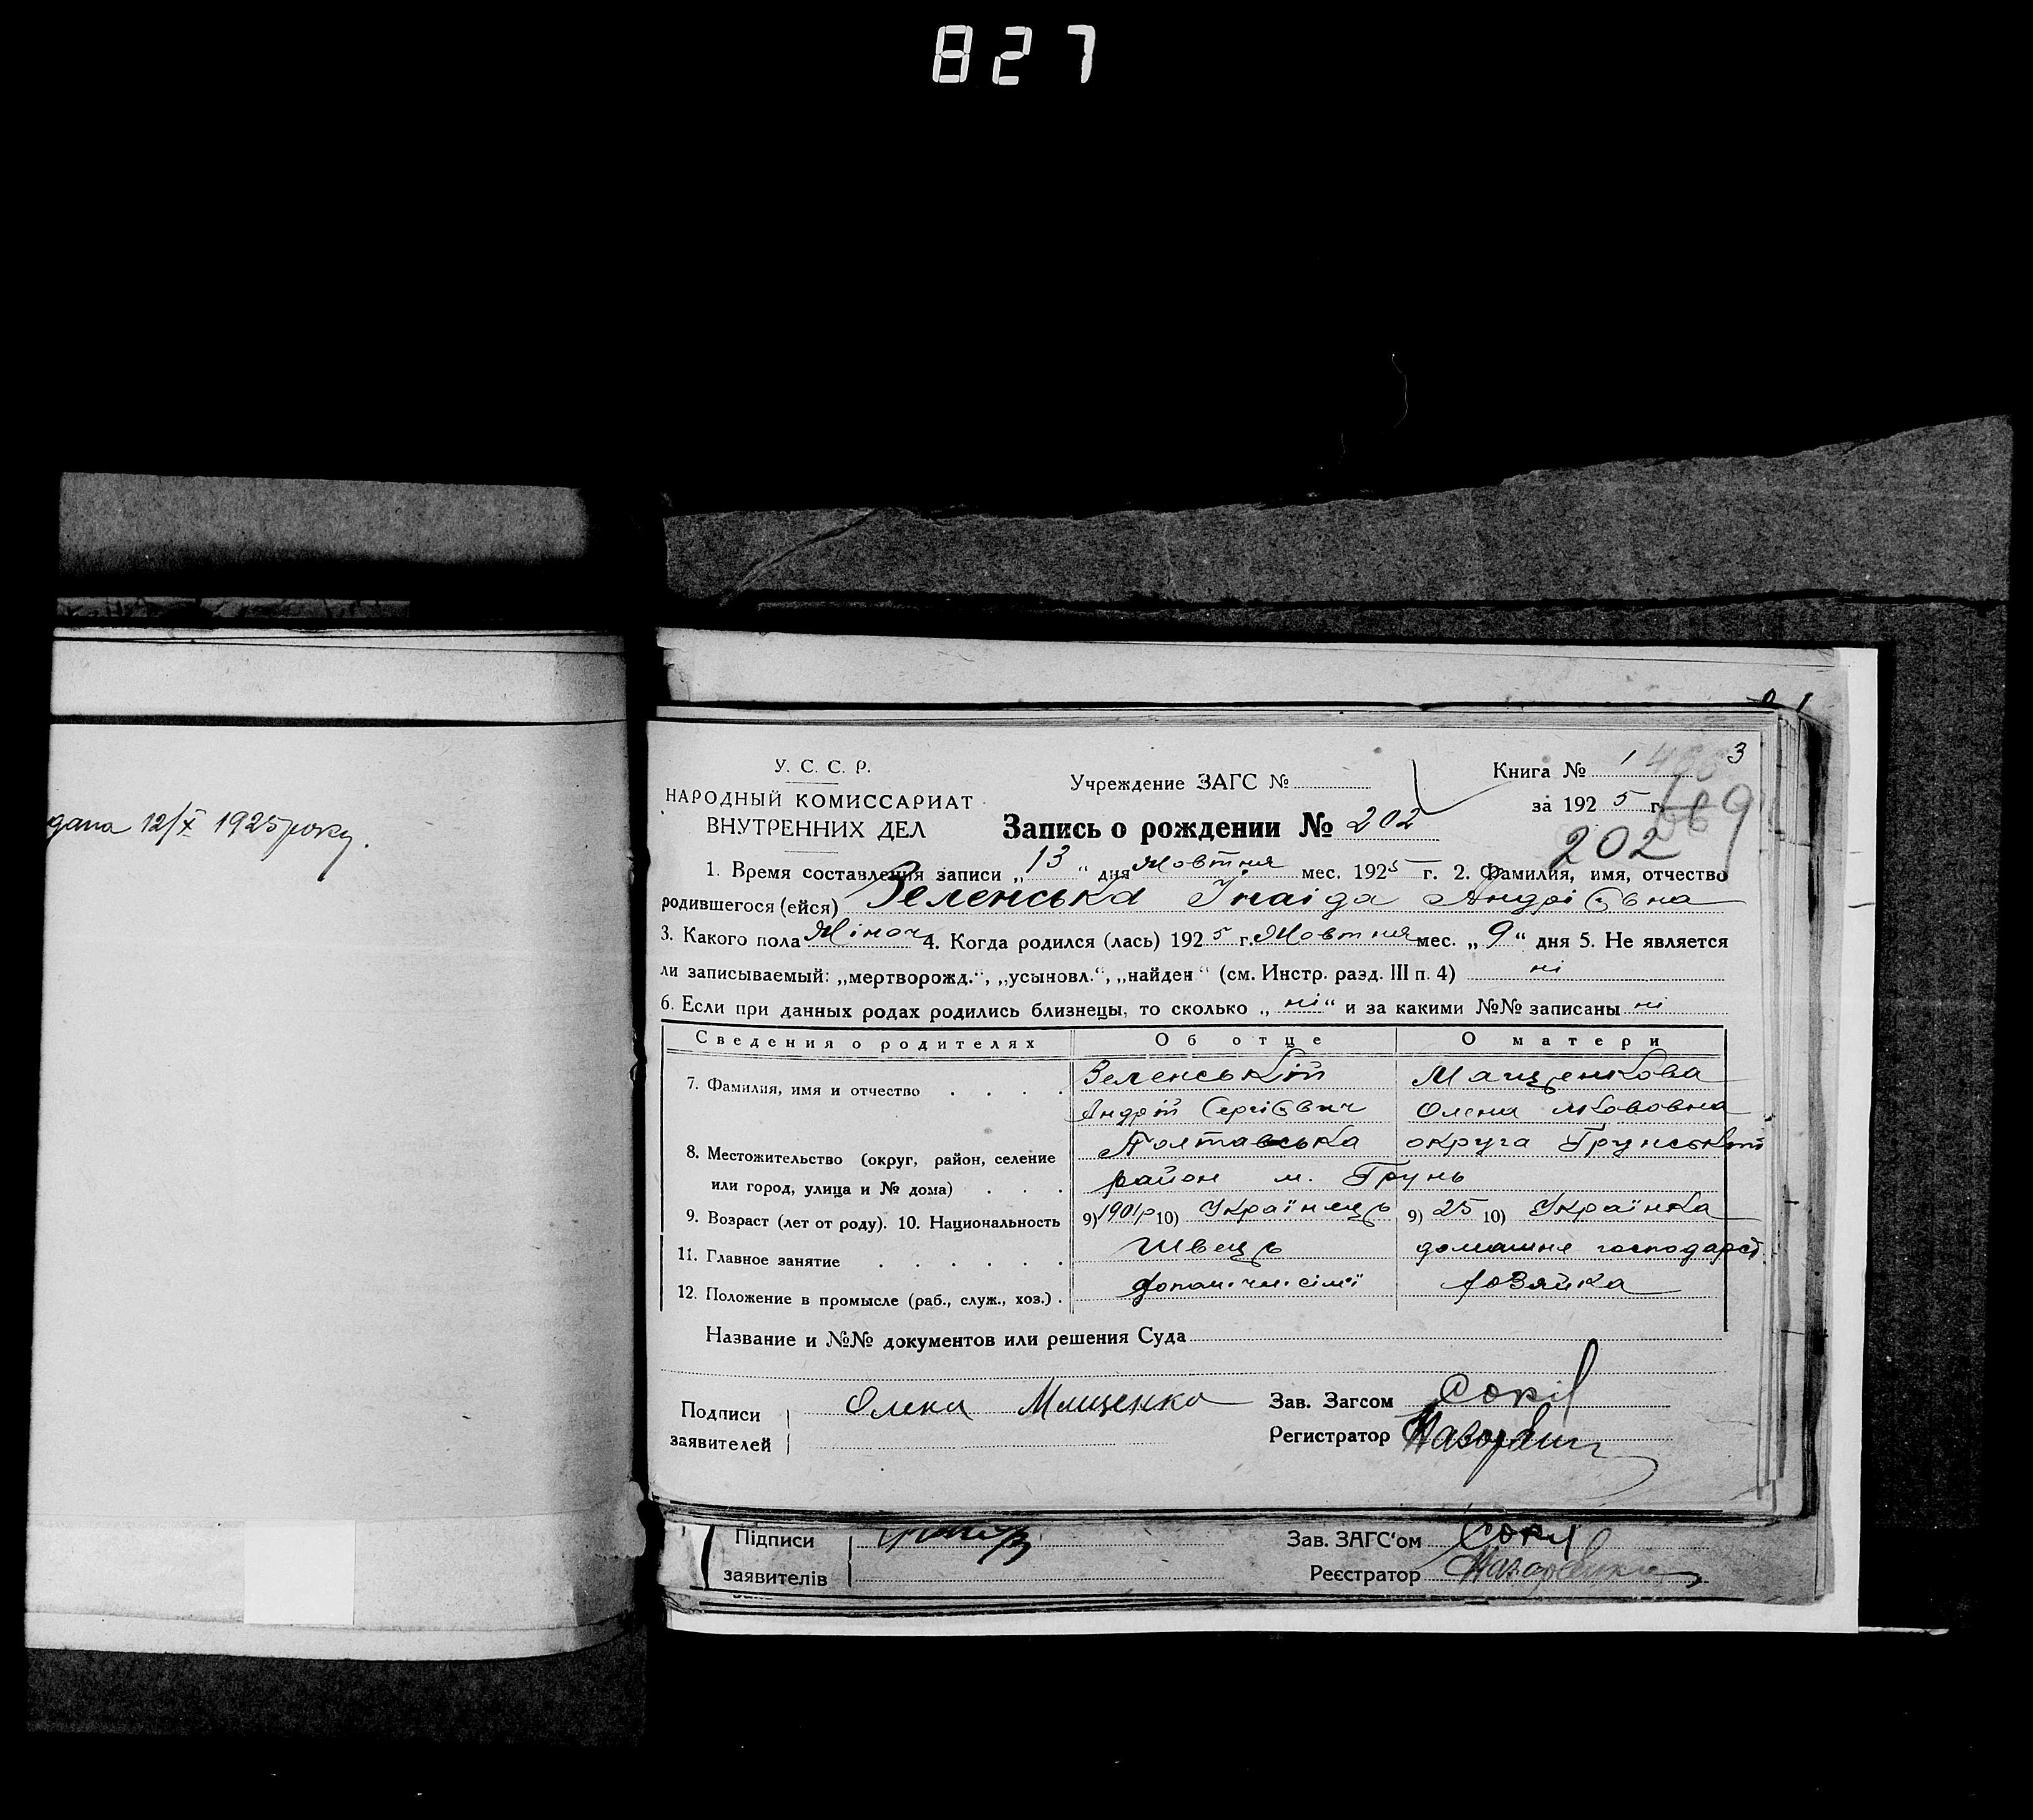 827
дана 12/X 1925 року.
3
У. С. С. Р.
НАРОДНЫЙ КОМИССАРИАТ
ВНУТРЕННИХ ДЕЛ
Учреждение ЗАГС №
Книга № 1
за 192 5 г.
Запись о рождении № 202
202
1. Время составления записи „ 13 “ дня Жовтня мес. 1925 г. 2. Фамилия, имя, отчество
родившегося (ейся) Зеленська Інаіда Андрієвна
3. Какого пола Жіноч 4. Когда родился (лась) 192 5 г. Жовтня мес. „ 9 “ дня 5. Не является
ли записываемый: „мертворожд.“, „усыновл.“, „найден“ (см. Инстр. разд. III п. 4) ні
6. Если при данных родах родились близнецы, то сколько „ ні “ и за какими №№ записаны ні
Сведения о родителях Об отце О матери
7. Фамилия, имя и отчество Зеленський Мащенкова
Андрій Сергієвич Олена
8. Местожительство (округ, район, селение Полтавська округа Грунський
или город, улица и № дома) район м. Грунь
9. Возраст (лет от роду). 10. Национальность 9) 1901р 10) Українець 9) 25 10) Українка
11. Главное занятие Швець домашнє господарст.
12. Положение в промысле (раб., служ., хоз.) допом. чл. сімї
Название и №№ документов или решения Суда
Подписи
заявителей
Олена Мащенко
Зав. Загсом Сокіл
Регистратор
Підписи
заявителів
Зав. ЗАГС‘ом
Реєстратор